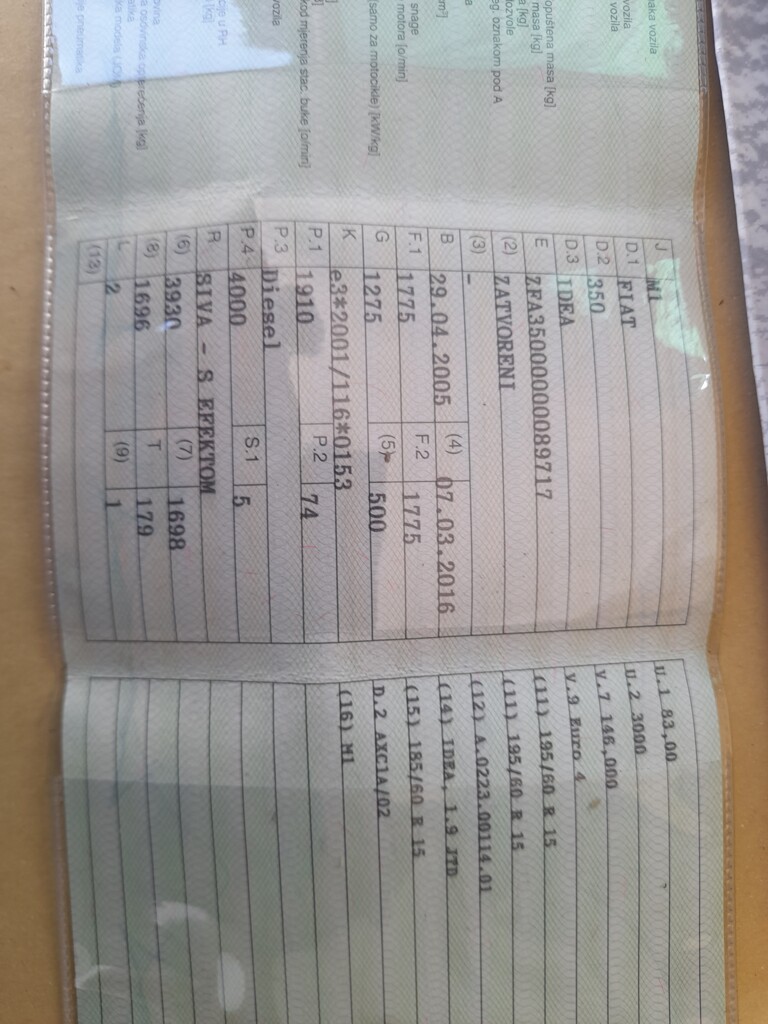 naka vozila
vozila
vozila
opuštena masa [kg]
masa [kg]
a [kg]
dozvole
eg oznakom pod A
a
m³]
snage
motora [o/min]
(samo za motocikle) [kW/kg]
]
kod mjerenja stac. buke [o/min]
vozila
cije u RH
[kg]
osovinska opterećenja [kg]
J M1
D.1 FIAT
D.2 350
D.3 IDEA
E ZFA35000000089717
(2) ZATVORENI
(3) -
B 29.04.2005 (4) 07.03.2016
F.1 1775 F.2 1775
G 1275 (5) 500
K e3*2001/116*0153
P.1 1910 P.2 74
P.3 Diesel
P.4 4000 S.1 5
R SIVA - S EFEKTOM
(6) 3930 (7) 1698
(8) 1696 T 179
L 2 (9) 1
(13)
U.1 83,00
U.2 3000
V.7 146,000
V.9 Euro 4
(11) 195/60 R 15
(11) 195/60 R 15
(12) A.0223.00114.01
(14) IDEA, 1.9 JTD
(15) 185/60 R 15
D.2 AXC1A/02
(16) M1